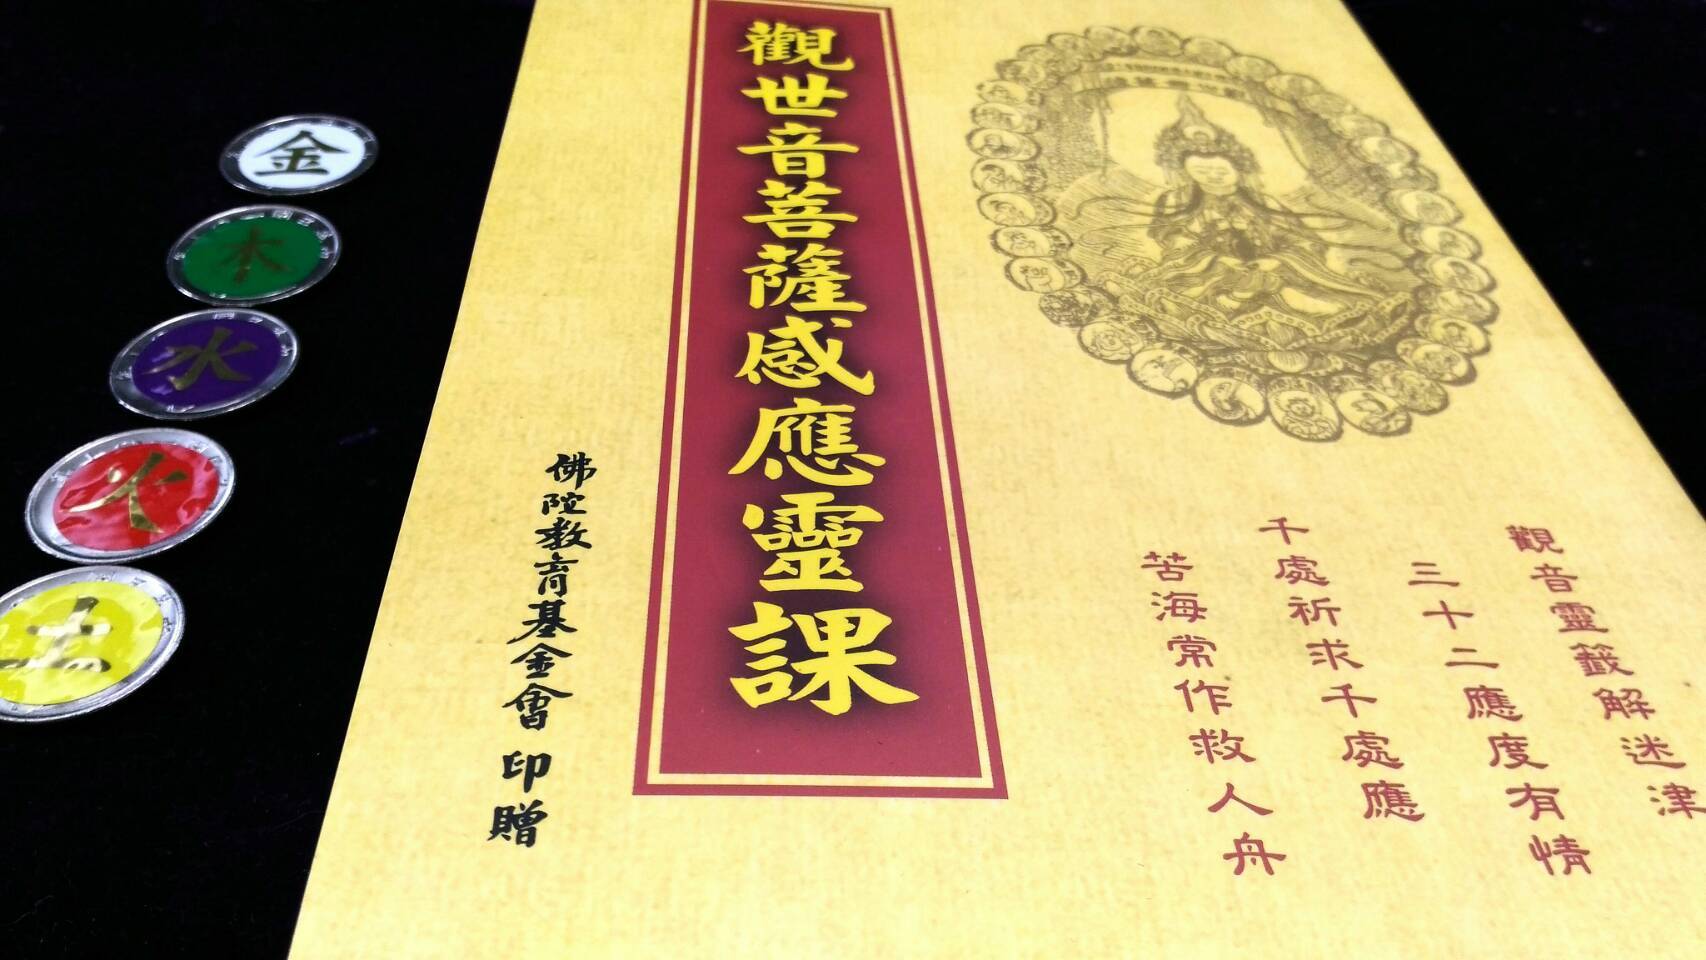 觀世音菩薩感應靈課
觀音靈籤解迷津
三十二應度有情
千處祈求千處應
苦海常作救人舟
佛陀教育基金會 印贈
金
木
水
火
土